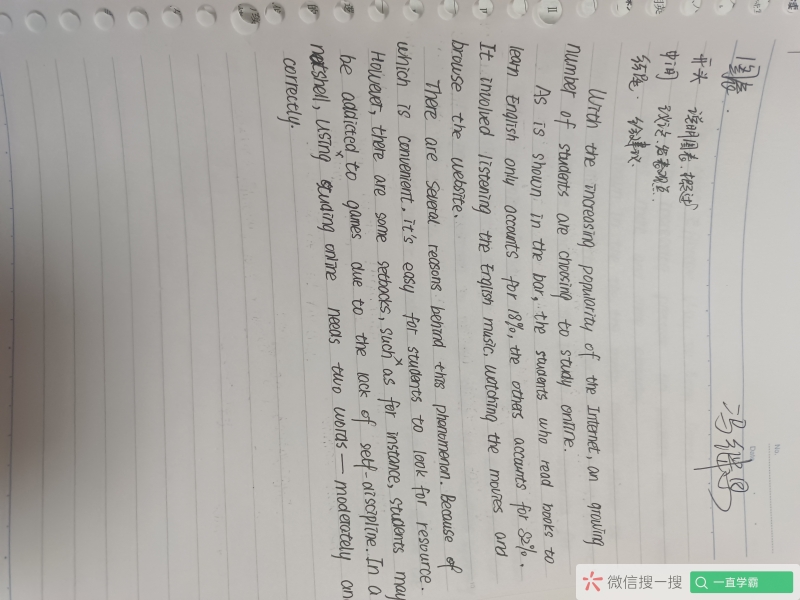 图表.
开头 说明图表.概述
中间 谈论.发表观点.
结尾. 给建议.
With the increasing popularity of the Internet, an growing
number of students are choosing to study online.
As is shown in the bar, the students who read books to
learn English only accounts for 18%, the others accounts for 82%.
It involved listening the English music, watching the movies and
browse the website.
There are several reasons behind this phenomenon. Because of
which is convenient, it's easy for students to look for resource.
However, there are some setbacks, such as for instance, students may
be addicted to games due to the lack of self-discipline. In a
nutshell, using studing online needs two words — moderately an
correctly.
No.
Date
微信搜一搜
一直学霸